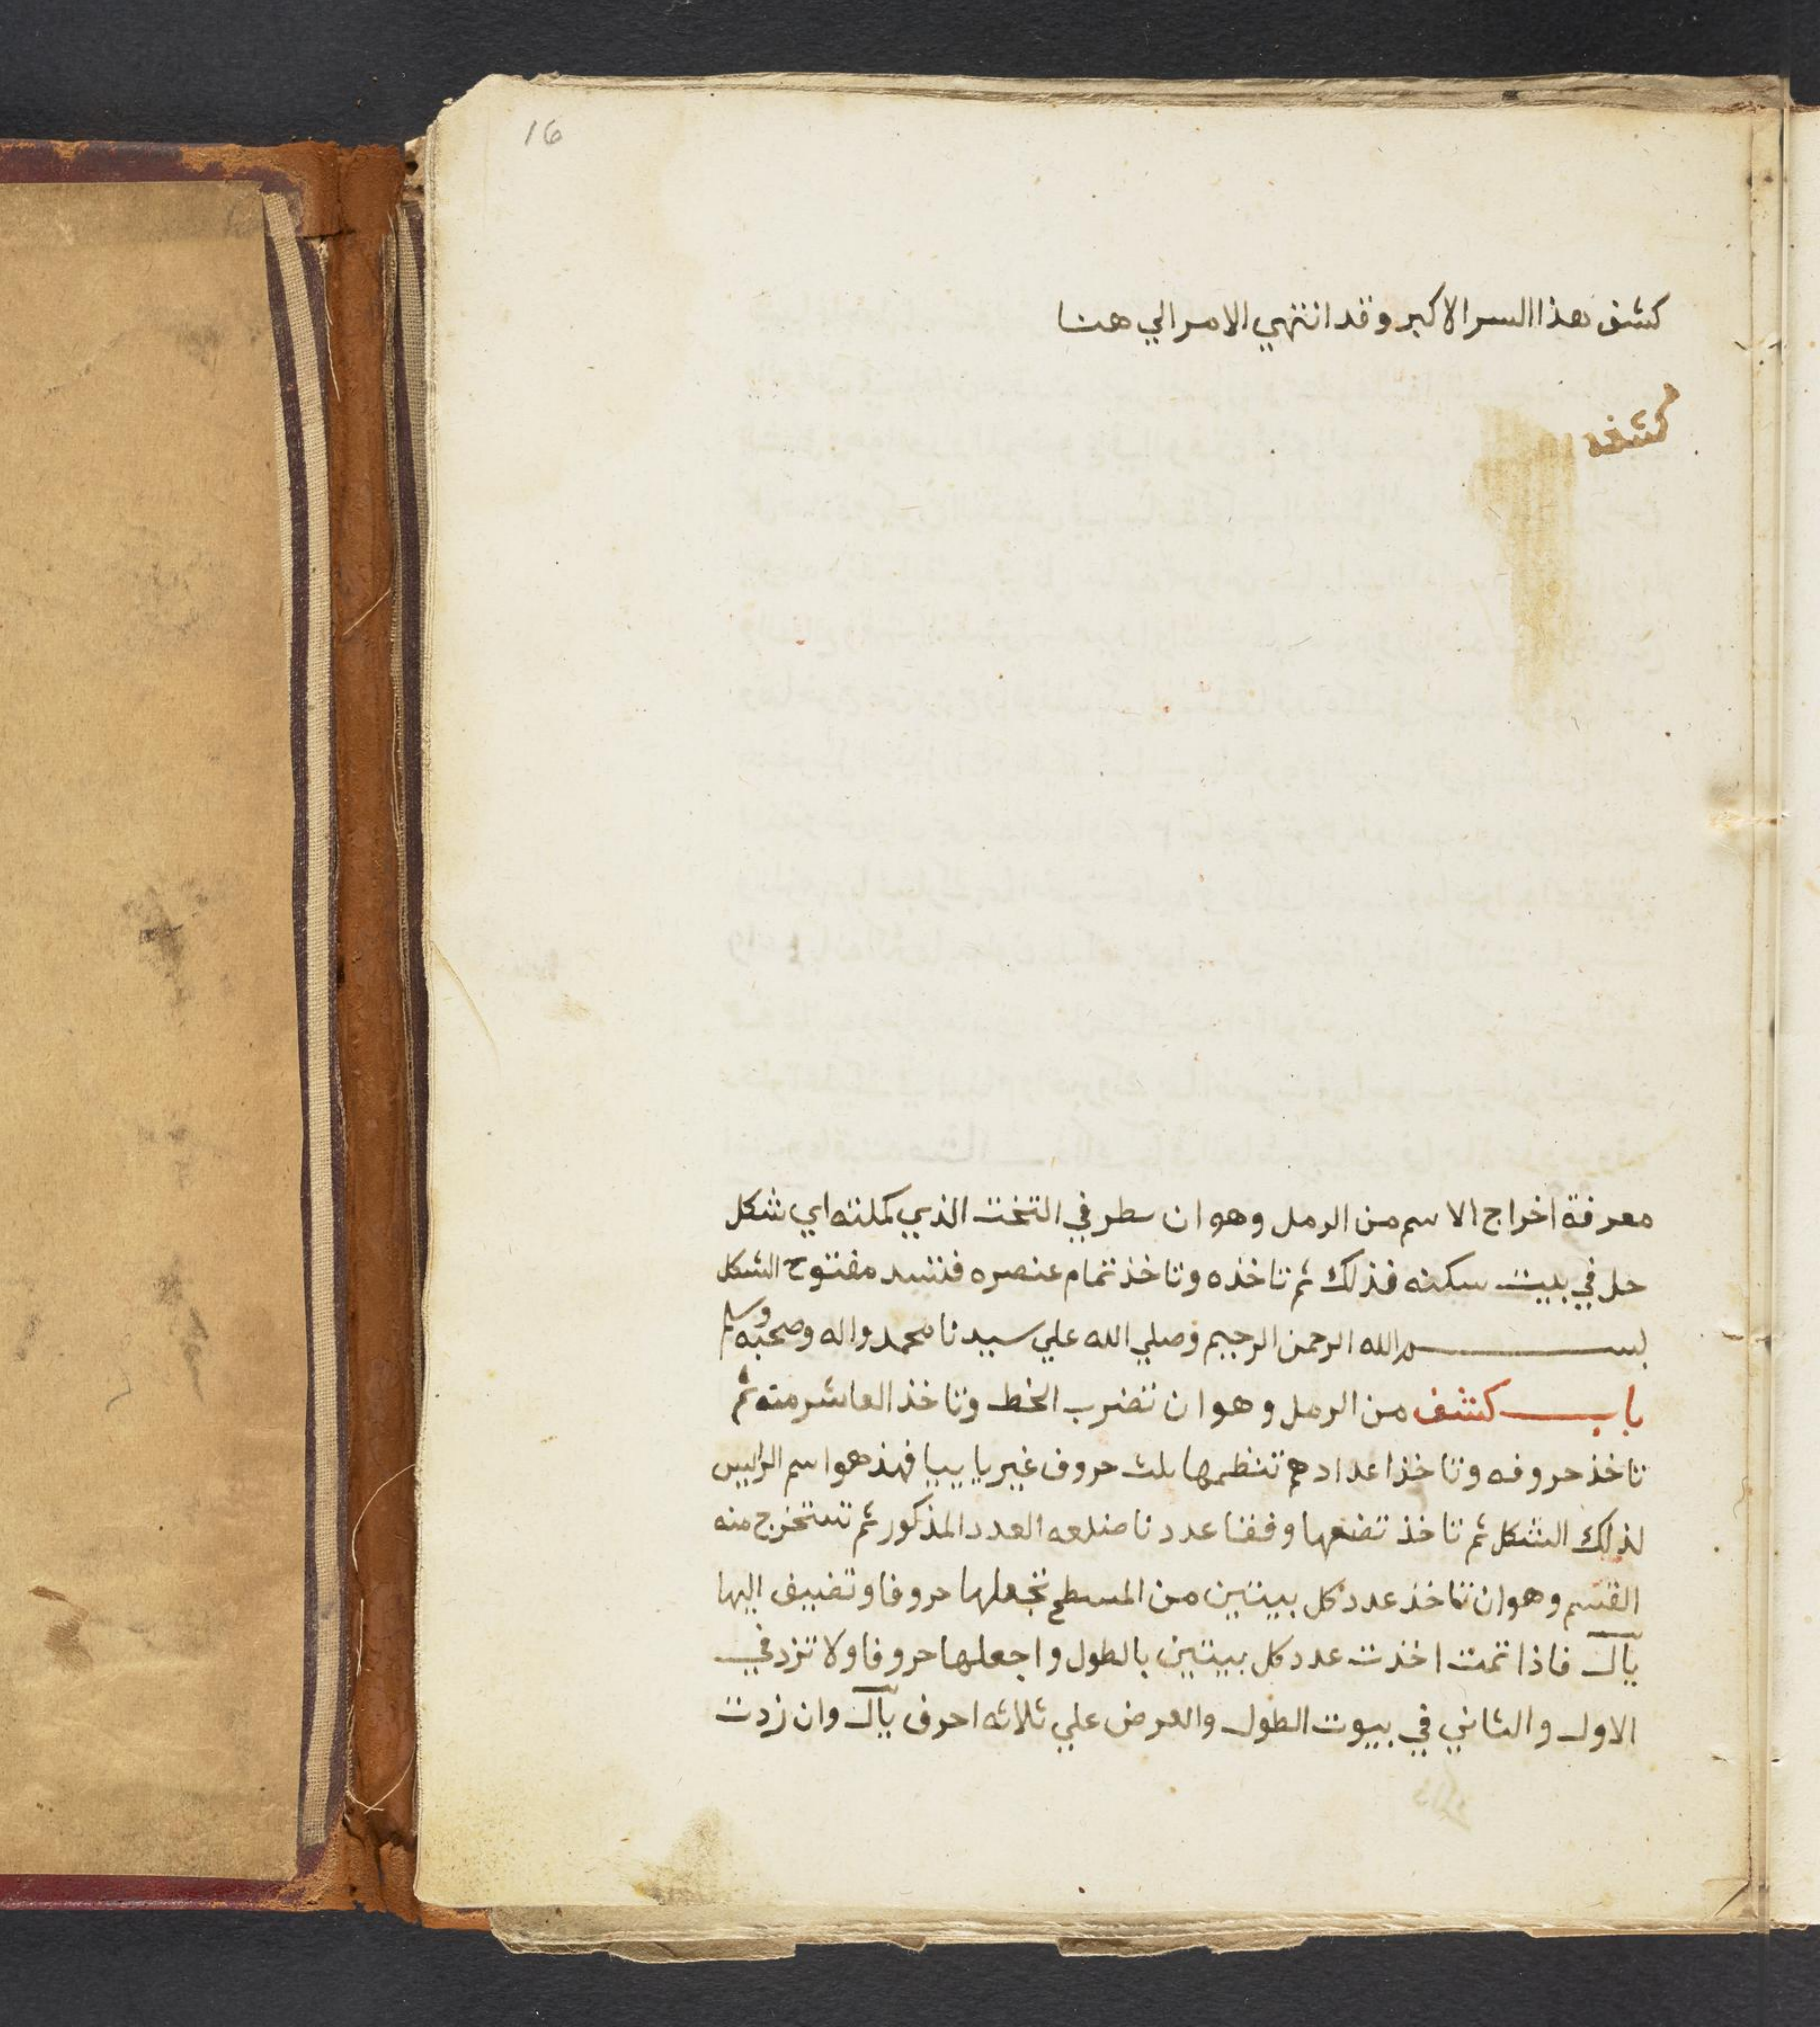 16
كشف هذا السر الاكبر وقد انتهي الامر الي هنا
كشف
معرفة اخراج الاسم من الرمل وهو ان سطر في التخت الذي كملته اي شكل
حل في بيت سكنه فذلك ثم تاخذه وتاخذ تمام عنصره مفتوح الشكل
بسم الله الرحمن الرحيم وصلي الله علي سيدنا محمد واله وصحبه وسلم
باب كشف من الرمل وهو ان تضرب الخط وتاخذ العاشر منه ثم
تاخذ حروفه وتاخذ اعدادهم تنظمها بلث حروف غير يا ييا فهذ هو اسم الراييس
لذلك الشكل ثم تاخذ تضعها وفقا عددنا ضلعه العدد المذكور ثم تستخرج منه
القسم وهو ان تاخذ عدد كل بيتين من المسطح تجعلها حروفا وتضيف اليها
ياك فاذا تمت اخذت عدد كل بيتين بالطول واجعلها حروفا ولا تزد في
الاول والثاني في بيوت الطول والعرض علي ثلاثه احرف ياك وان زدت